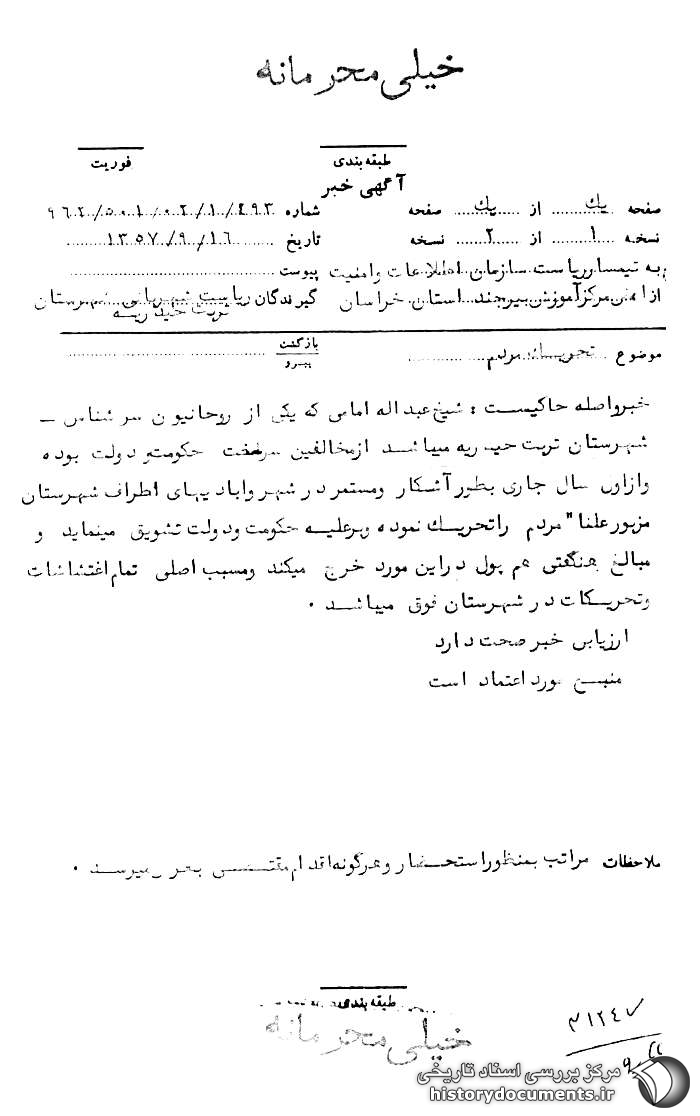 خیلی محرمانه
طبقه بندی
فوریت
آگهی خبر
صفحه یك از یك صفحه
شماره ۹۶۲/۵۰۱/۰۲/۱۰/۴۹۳
نسخه ۱ از ۲ نسخه
تاریخ ۱۳۵۷/۹/۱۶
به تیمسار ریاست سازمان اطلاعات وامنیت
پیوست
از مرکز آموزش بیرجند استان خراسان
گیرندگان ریاست شهربانی شهرستان
تربت حیدریه
موضوع تحریك مردم
بازگشت
پیرو
خبر واصله حاکیست : شیخ عبداله امامی که یکی از روحانیون سرشناس
شهرستان تربت حیدریه میباشد از مخالفین سرسخت حکومت و دولت بوده
و از اول سال جاری بطور آشکار ومستمر در شهر وابادیهای اطراف شهرستان
مزبور علنا" مردم راتحریك نموده وبرعلیه حکومت ودولت تشویق مینماید و
مبالغ هنگفتی هم پول دراین مورد خرج میکند ومسبب اصلی تمام اغتشاشات
وتحریکات در شهرستان فوق میباشد .
ارزیابی خبر صحت دارد
منبع مورد اعتماد است
ملاحظات مراتب بمنظور استحضار و هرگونه اقدام مقتضی بعرض میرسد .
طبقه بندی
خیلی محرمانه
مرکز بررسی اسناد تاریخی
historydocuments.ir